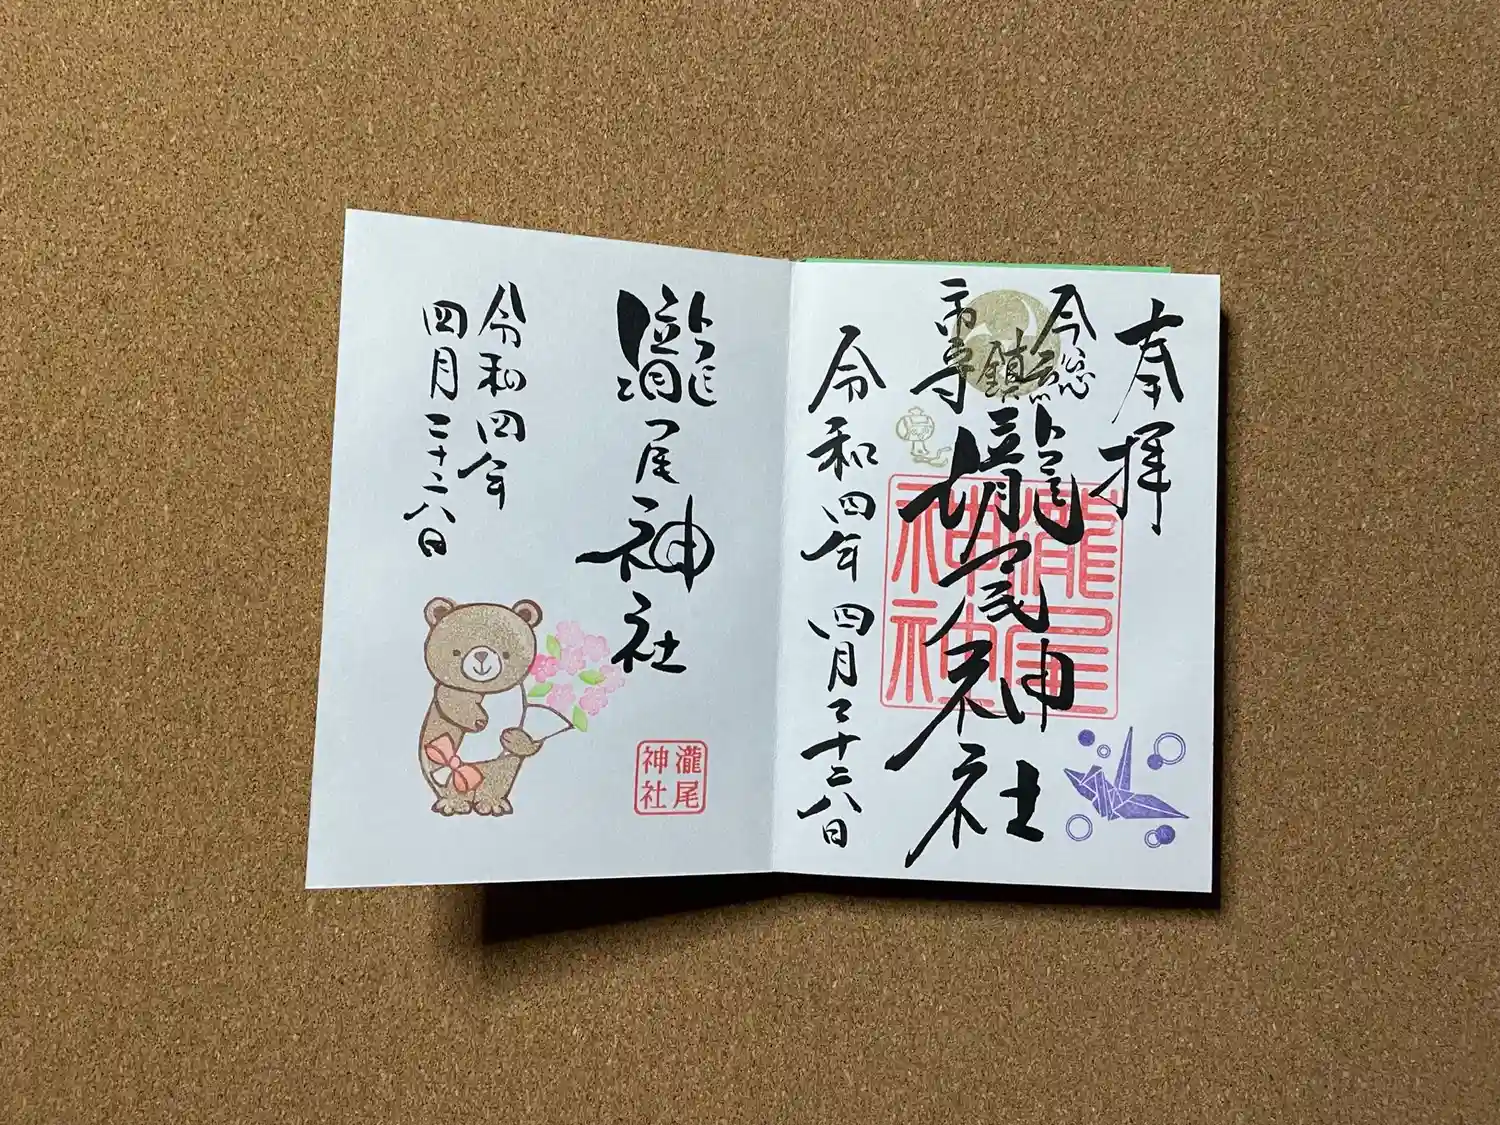 奉拝
今市
総鎮守
瀧尾神社
瀧尾
神社
令和四年 四月二十八日
瀧尾神社
瀧尾
神社
令和四年
四月二十八日